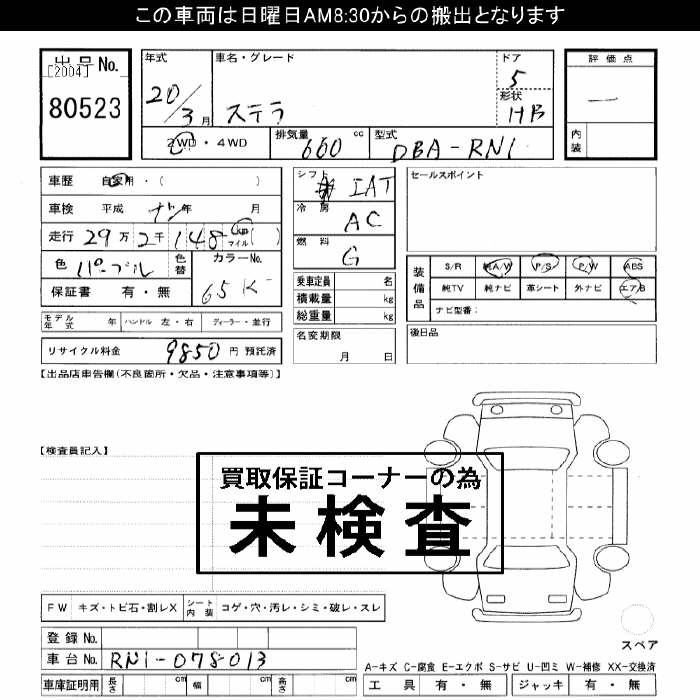 この車両は日曜日AM8:30からの搬出となります
出品No.
[2004]
80523
年式 車名・グレード ドア 評価点
20/3月 ステラ 5
形状 HB
一
内装
2WD・4WD 排気量 660 cc 型式 DBA-RN1
車歴 自家用・( )
シフト IAT
セールスポイント
車検 平成 年 月
冷房 AC
走行 29万2千148 km マイル ( )
燃料 G
色 パープル 色替 カラーNo. 65K
装備品 S/R 純A/W P/S P/W ABS
保証書 有・無
乗車定員 名
純TV 純ナビ 革シート 外ナビ エアB
積載量 kg
ナビ型番:
総重量 kg
モデル年式 年 ハンドル 左・右 ディーラー・並行
名変期限 月 日
後日品
リサイクル料金 9850 円 預託済
【出品店車告欄(不良箇所・欠品・注意事項等)】
【検査員記入】
買取保証コーナーの為
未検査
FW キズ・トビ石・割レX シート内装 コゲ・穴・汚レ・シミ・破レ・スレ
登録No.
スペア
車台No. RN1-078013
A-キズ C-腐食 E-エクボ S-サビ U-凹ミ W-補修 XX-交換済
車庫証明用 長さ cm 幅 cm 高さ cm
工具 有・無 ジャッキ 有・無